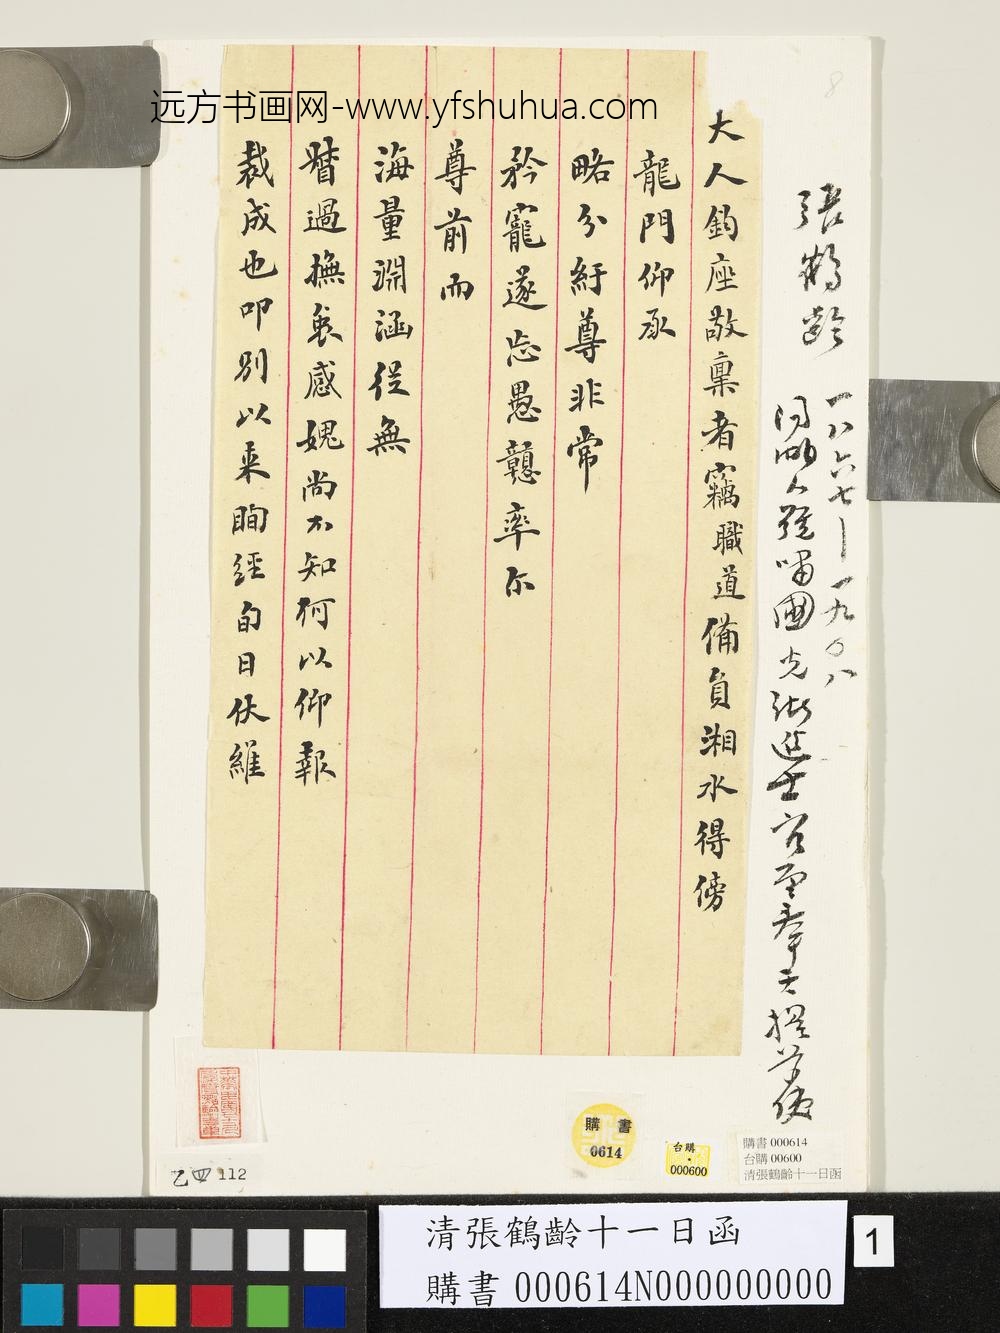 远方书画网-www.yfshuhua.com
8
大人鈞座敬稟者竊職道備員湘水得傍
龍門仰承
略分紆尊非常
矜寵遂忘愚戇率尓
尊前而
海量淵涵從無
督過撫衷感媿尚不知何以仰報
裁成也叩別以來眴經旬日伏維
張鶴齡
一八六七—一九〇八
陽湖人號嘯圃光緒進士官至奉天提學使
購書
0614
台購
000600
購書 000614
台購 00600
清張鶴齡十一日函
乙四 112
清張鶴齡十一日函
購書 000614N000000000
1